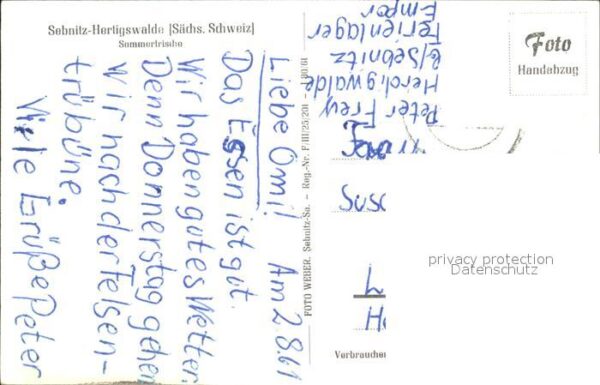 Sebnitz-Hertigswalde (Sächs. Schweiz)
Sommerfrische
Liebe Omi! Am 2.8.61
Das Essen ist gut.
Wir haben gutes Wetter.
Denn Donnerstag gehen
wir nach der Felsen-
trübüne.
Viele Grüße Peter
Peter Frey
Herdigwalde
b/Sebnitz
Ferienlager
Empor
FOTO WEBER, Sebnitz-Sa. - Reg.-Nr. F/III/25/201
Foto
Handabzug
privacy protection
Datenschutz
Verbraucher